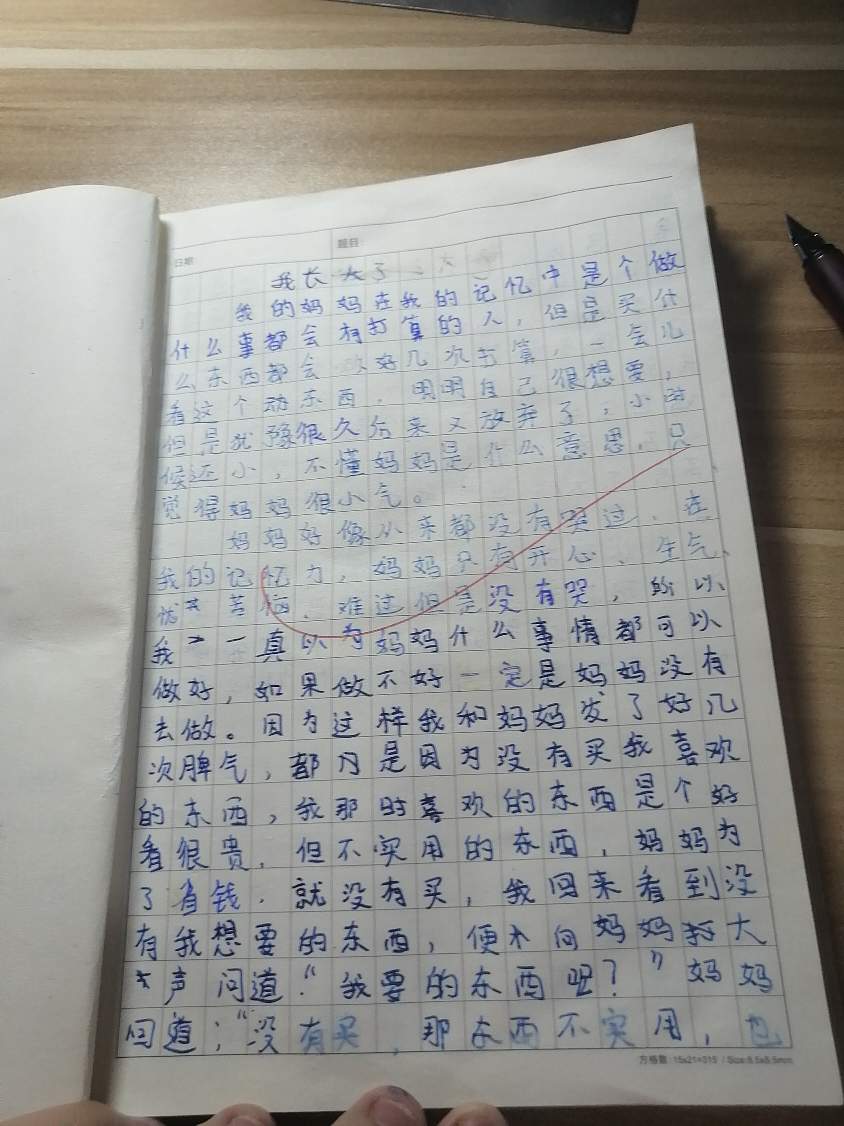 日期 题目
我长大了
我的妈妈在我的记忆中是个做
什么事都会有打算的人，但是买什
么东西都会 好几次打算，一会儿
看这个 东西，明明自己很想要，
但是犹豫很久后来又放弃了，小时
候还小，不懂妈妈是什么意思，只
觉得妈妈很小气。
妈妈好像从来都没有哭过，在
我的记忆力，妈妈只有开心、生气、
苦恼、难过但是没有哭，所以
我一真以为妈妈什么事情都可以
做好，如果做不好一定是妈妈没有
去做。因为这样我和妈妈发了好几
次脾气，都 是因为没有买我喜欢
的东西，我那时喜欢的东西是个好
看很贵，但不实用的东西，妈妈为
了省钱，就没有买，我回来看到没
有我想要的东西，便 向妈妈 大
声问道：“我要的东西呢？”妈妈
回道：“没有买，那东西不实用，也
方格数：15x21=315 / Size:8.5x8.5mm